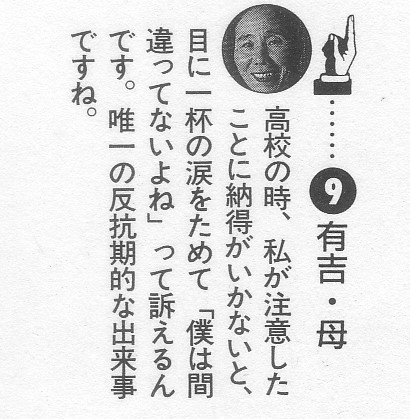 ……❾有吉・母
高校の時、私が注意した
ことに納得がいかないと、
目に一杯の涙をためて「僕は間
違ってないよね」って訴えるん
です。唯一の反抗期的な出来事
ですね。